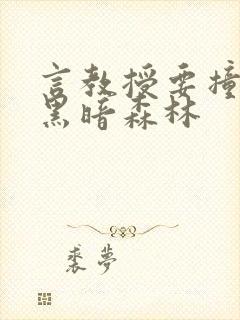 言教授要撞
黑暗森林
裘梦